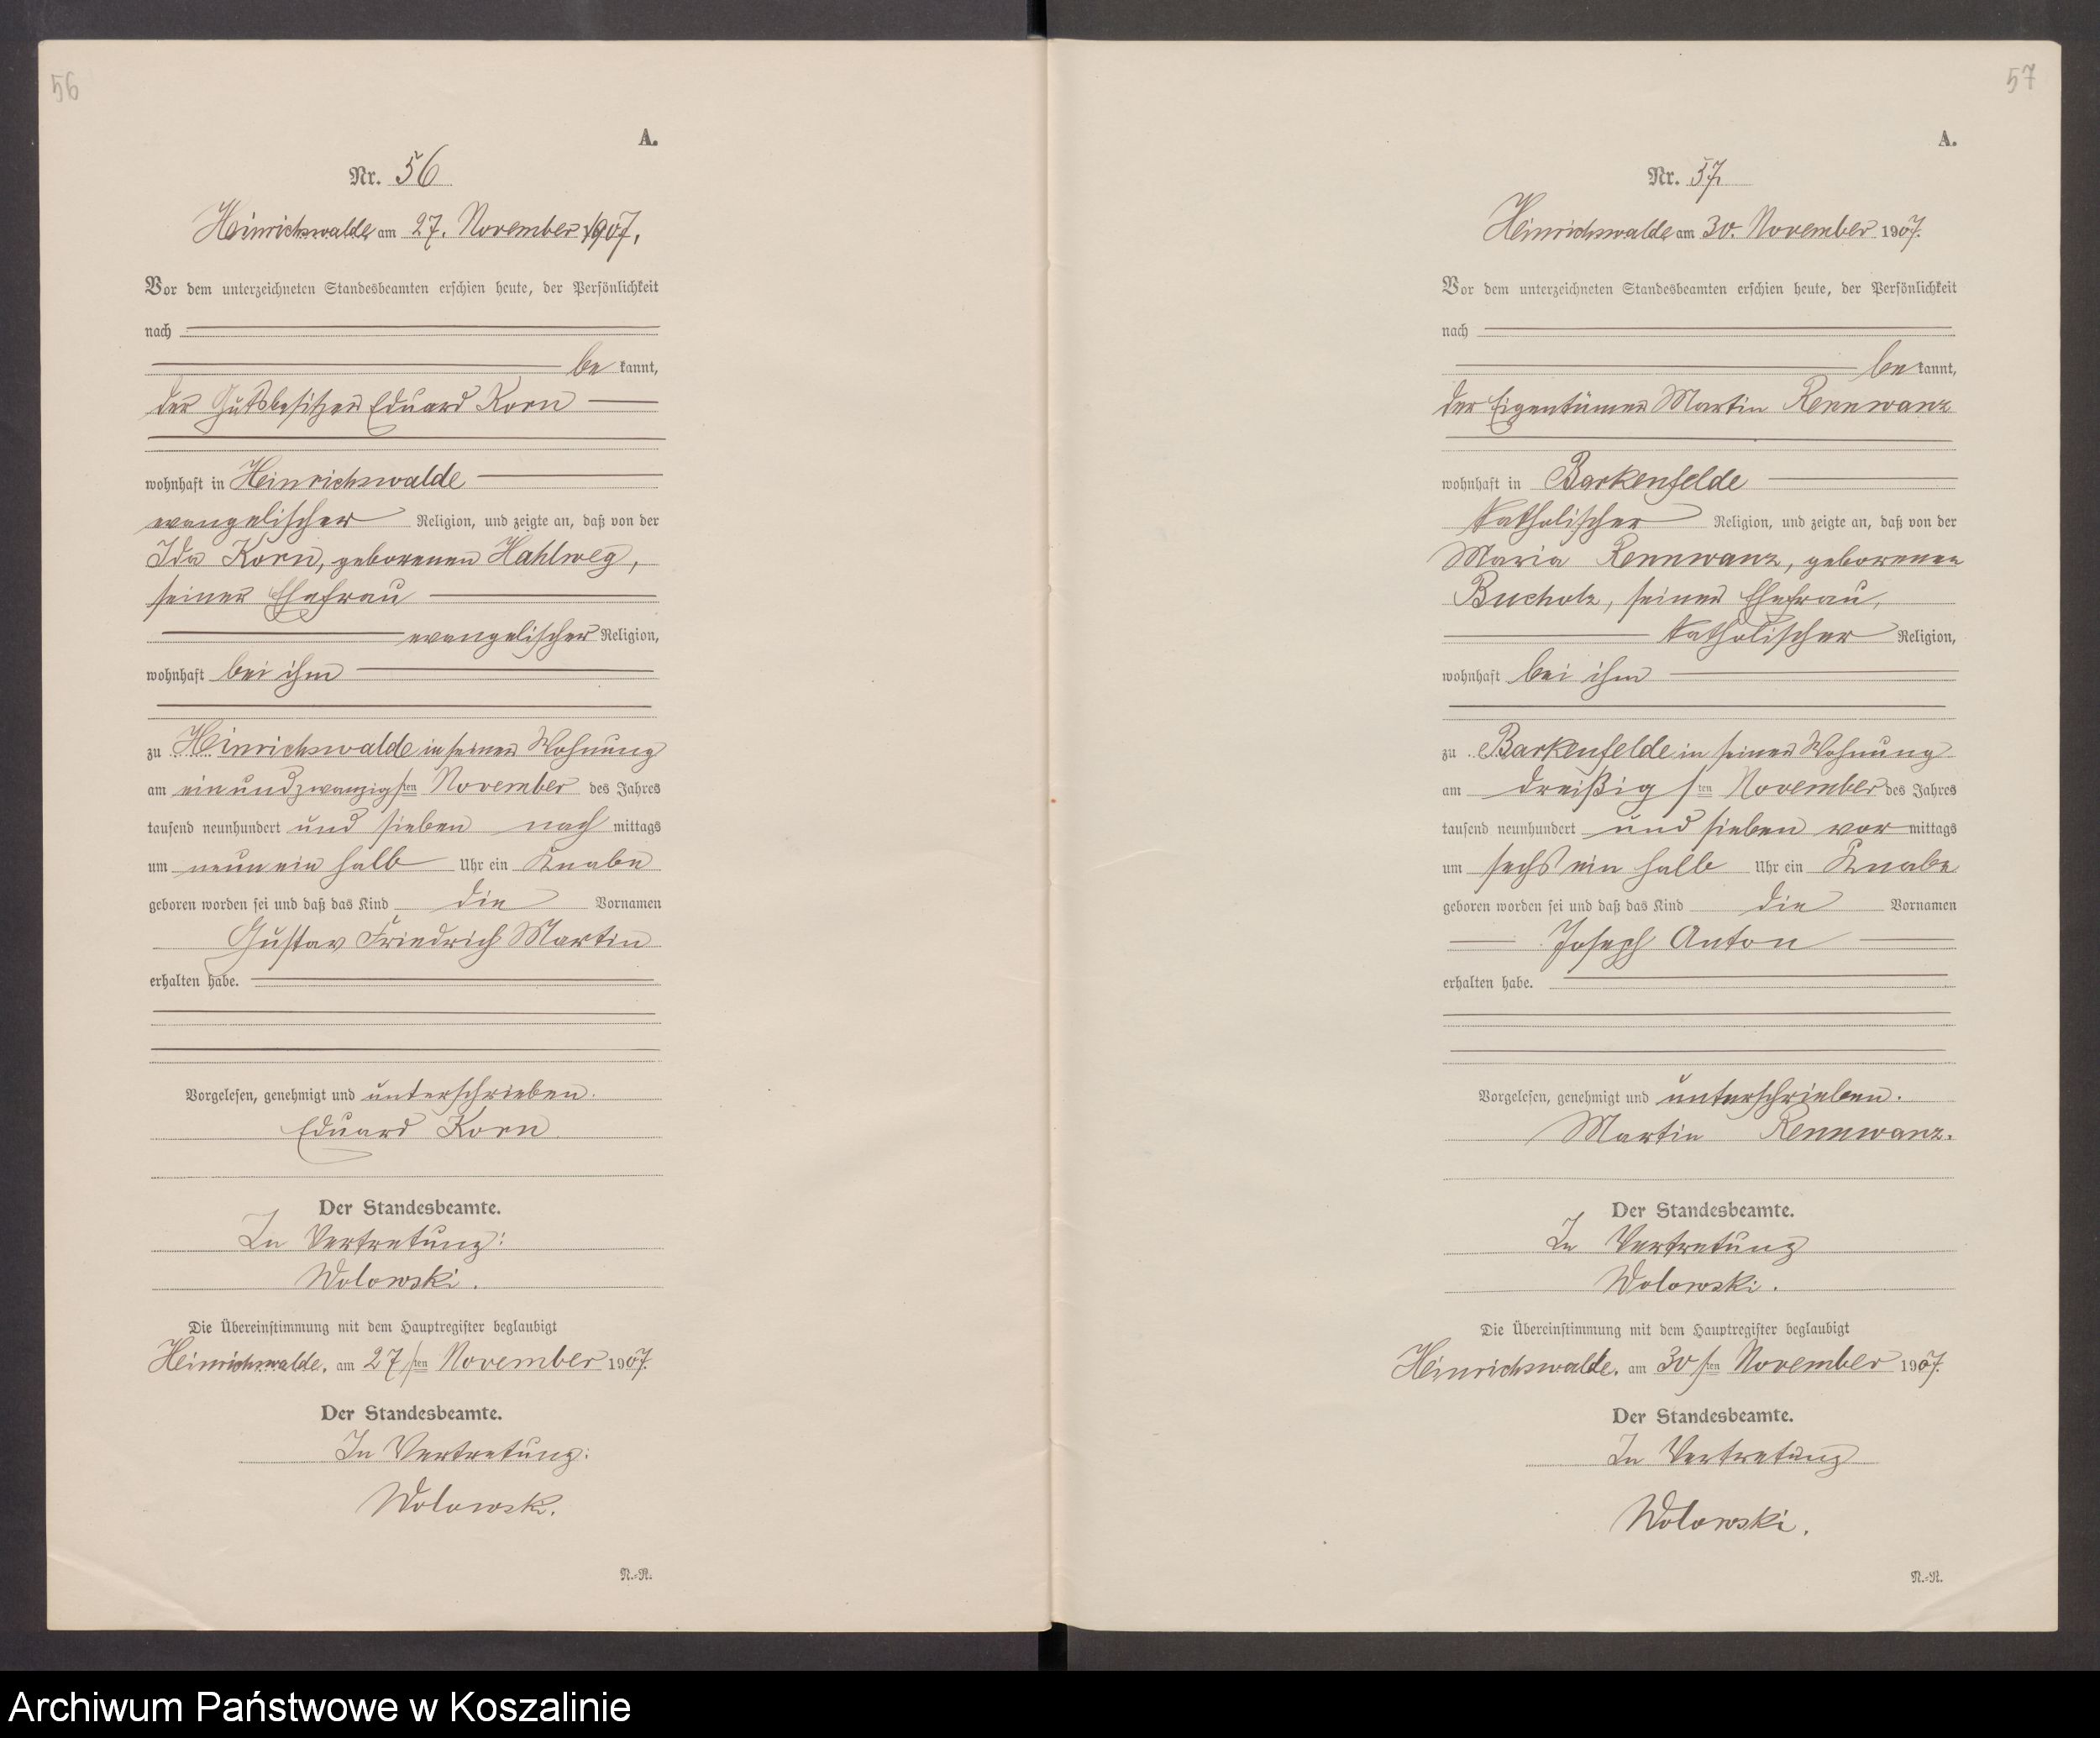 56
A.
Nr. 56
Heinrichswalde am 27. November 1907.
Vor dem unterzeichneten Standesbeamten erschien heute, der Persönlichkeit
nach
be kannt,
der Gutsbesitzer Eduard Korn
wohnhaft in Heinrichswalde
evangelischer Religion, und zeigte an, daß von der
Ida Korn, geborenen Hahlweg,
seiner Ehefrau
evangelischer Religion,
wohnhaft bei ihm
zu Heinrichswalde in seiner Wohnung
am einundzwanzigsten November des Jahres
tausend neunhundert und sieben nach mittags
um neun ein halb Uhr ein Knabe
geboren worden sei und daß das Kind die Vornamen
Gustav Friedrich Martin
erhalten habe.
Vorgelesen, genehmigt und unterschrieben.
Eduard Korn
Der Standesbeamte.
In Vertretung:
Wolowski.
Die Übereinstimmung mit dem Hauptregister beglaubigt
Heinrichswalde, am 27sten November 1907.
Der Standesbeamte.
In Vertretung:
Wolowski.
N.=R.
57
A.
Nr. 57.
Heinrichswalde am 30. November 1907.
Vor dem unterzeichneten Standesbeamten erschien heute, der Persönlichkeit
nach
be kannt,
der Eigentümer Martin Rennwanz
wohnhaft in Barkenfelde
katholischer Religion, und zeigte an, daß von der
Maria Rennwanz, geborenen
Bucholz, seiner Ehefrau,
katholischer Religion,
wohnhaft bei ihm
zu Barkenfelde in seiner Wohnung
am dreißigsten November des Jahres
tausend neunhundert und sieben vor mittags
um sechs ein halb Uhr ein Knabe
geboren worden sei und daß das Kind die Vornamen
Joseph Anton
erhalten habe.
Vorgelesen, genehmigt und unterschrieben.
Martin Rennwanz.
Der Standesbeamte.
In Vertretung
Wolowski.
Die Übereinstimmung mit dem Hauptregister beglaubigt
Heinrichswalde, am 30sten November 1907.
Der Standesbeamte.
In Vertretung
Wolowski.
N.=R.
Archiwum Państwowe w Koszalinie